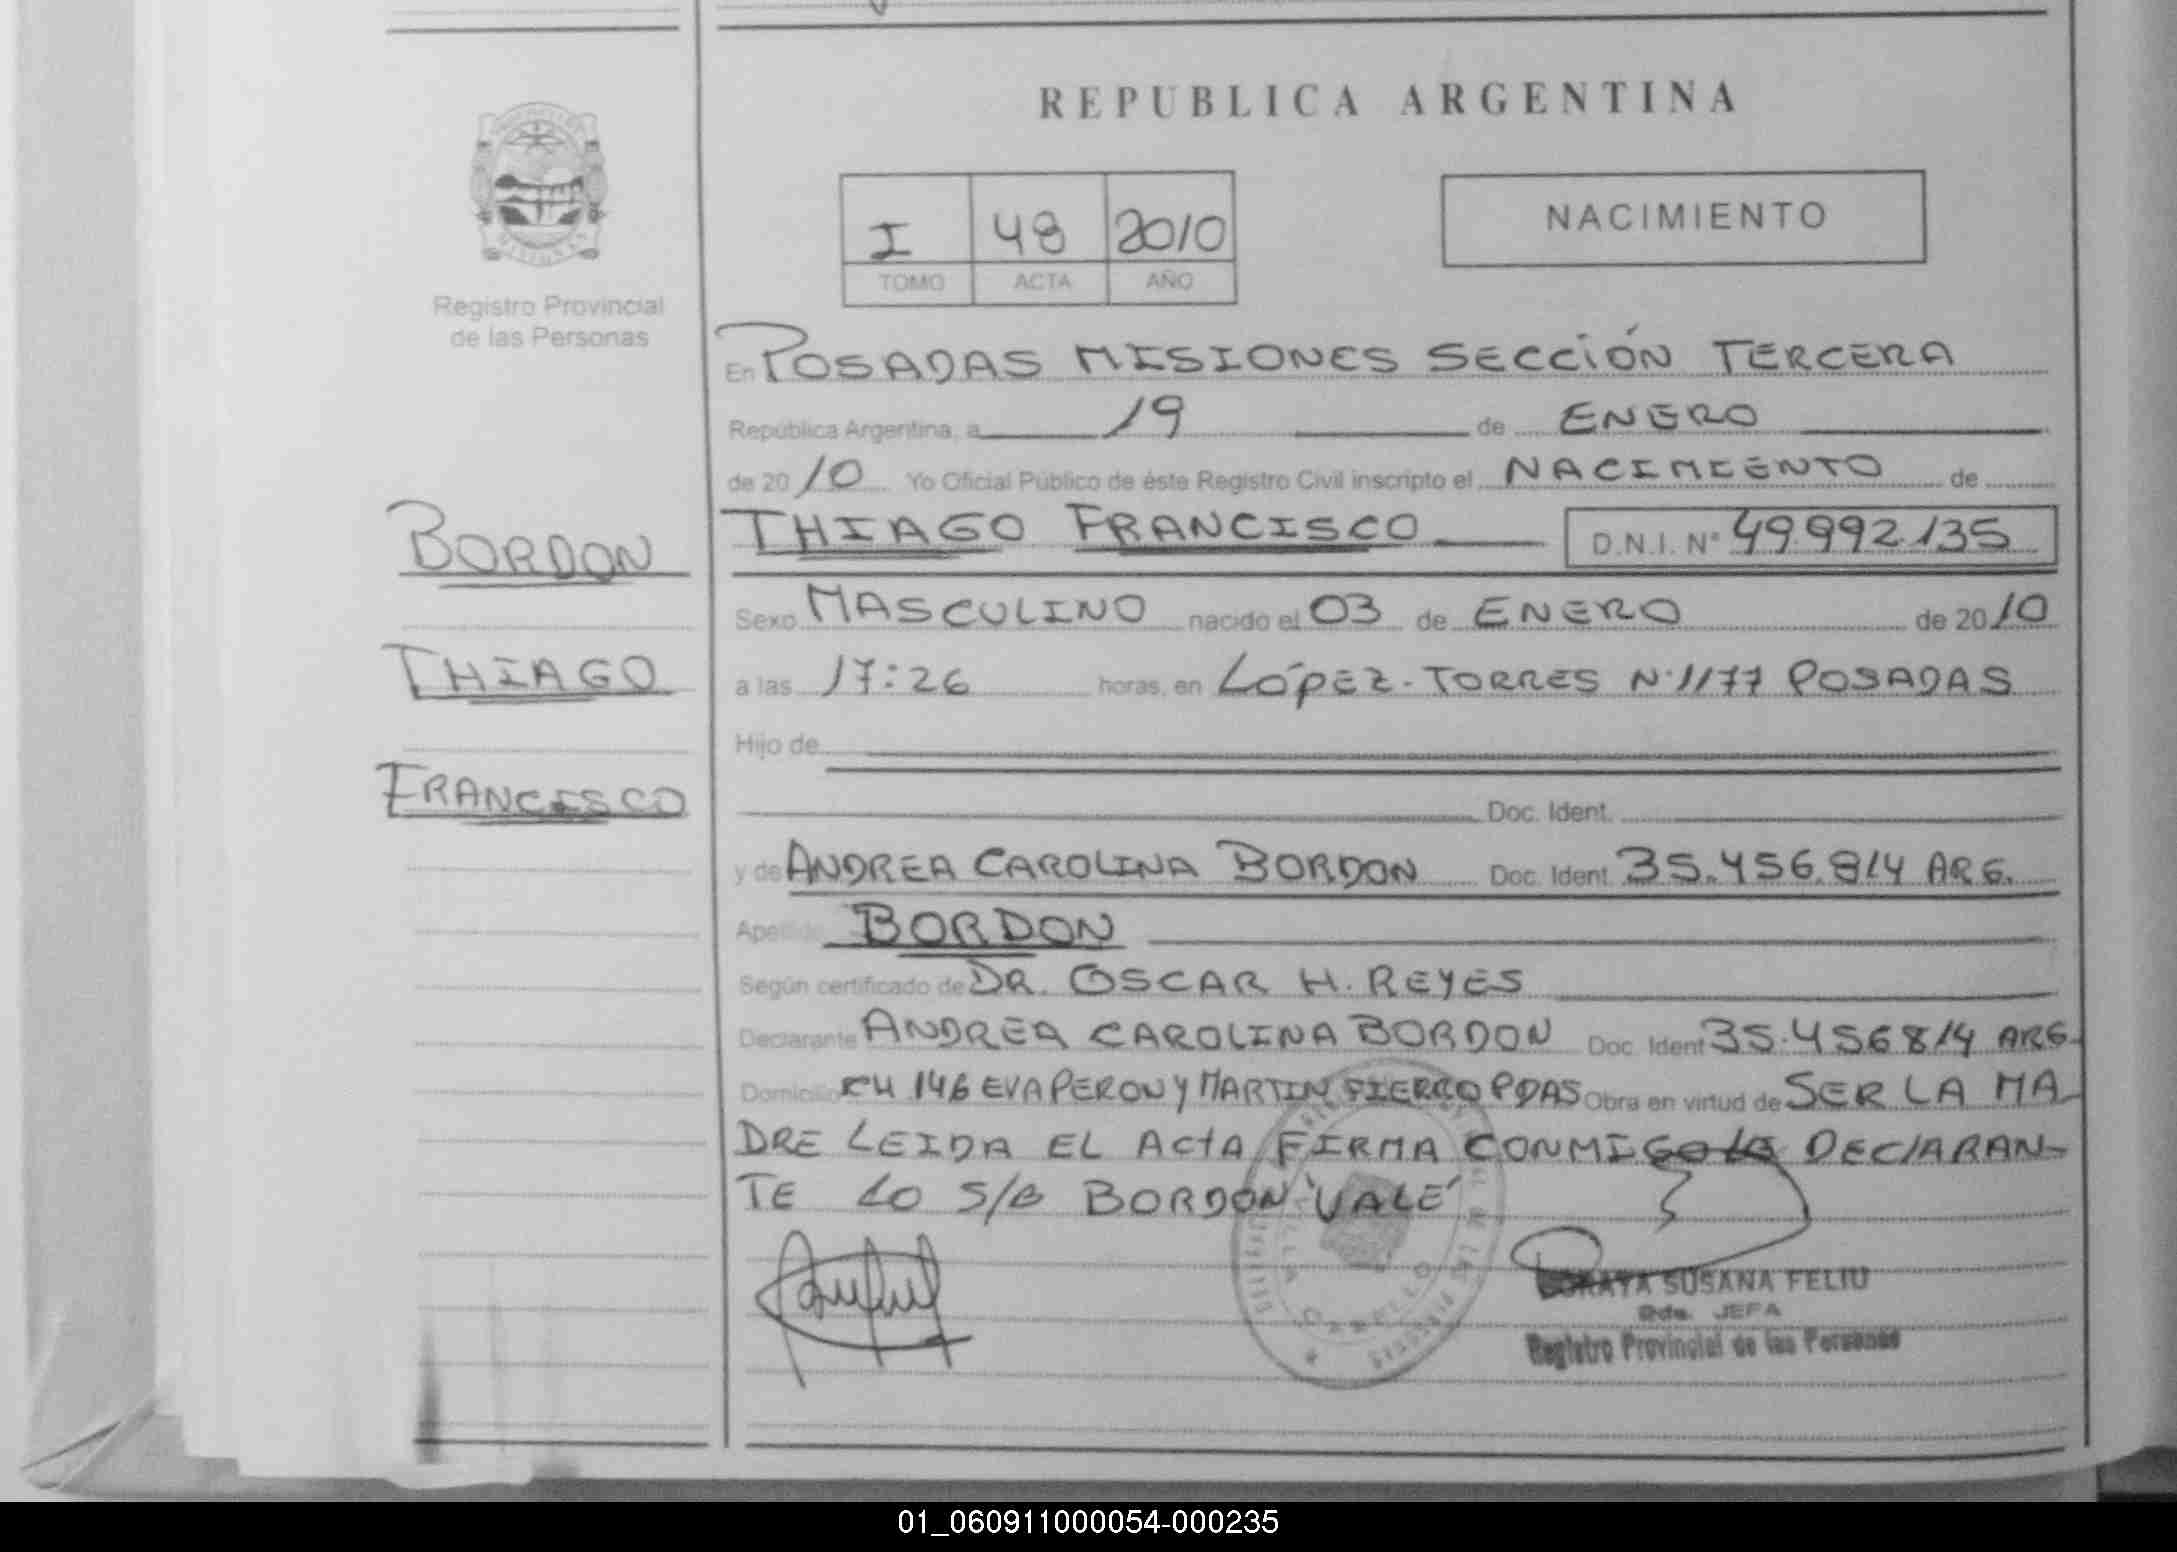 REPUBLICA ARGENTINA
I 48 2010
TOMO ACTA AÑO
NACIMIENTO
Registro Provincial
de las Personas
BORDON
THIAGO
FRANCISCO
En POSADAS MISIONES SECCIÓN TERCERA
República Argentina, a 19 de ENERO
de 2010 Yo Oficial Público de éste Registro Civil inscripto el NACIMIENTO de
THIAGO FRANCISCO D.N.I. Nº 49.992.135
Sexo MASCULINO nacido el 03 de ENERO de 2010
a las 17:26 horas, en LÓPEZ-TORRES Nº1177 POSADAS
Hijo de
Doc. Ident.
y de ANDREA CAROLINA BORDON Doc. Ident. 35.456.814 ARG.
Apellido BORDON
Según certificado de DR. OSCAR H. REYES
Declarante ANDREA CAROLINA BORDON Doc. Ident 35.456814 ARG.
Domicilio CH 146 EVA PERON Y MARTIN FIERRO PDAS Obra en virtud de SER LA MA-
DRE LEIDA EL ACTA FIRMA CONMIGO LA DECLARAN-
TE LO S/B BORDON "VALE"
SORAYA SUSANA FELIU
JEFA
Registro Provincial de las Personas
01_060911000054-000235